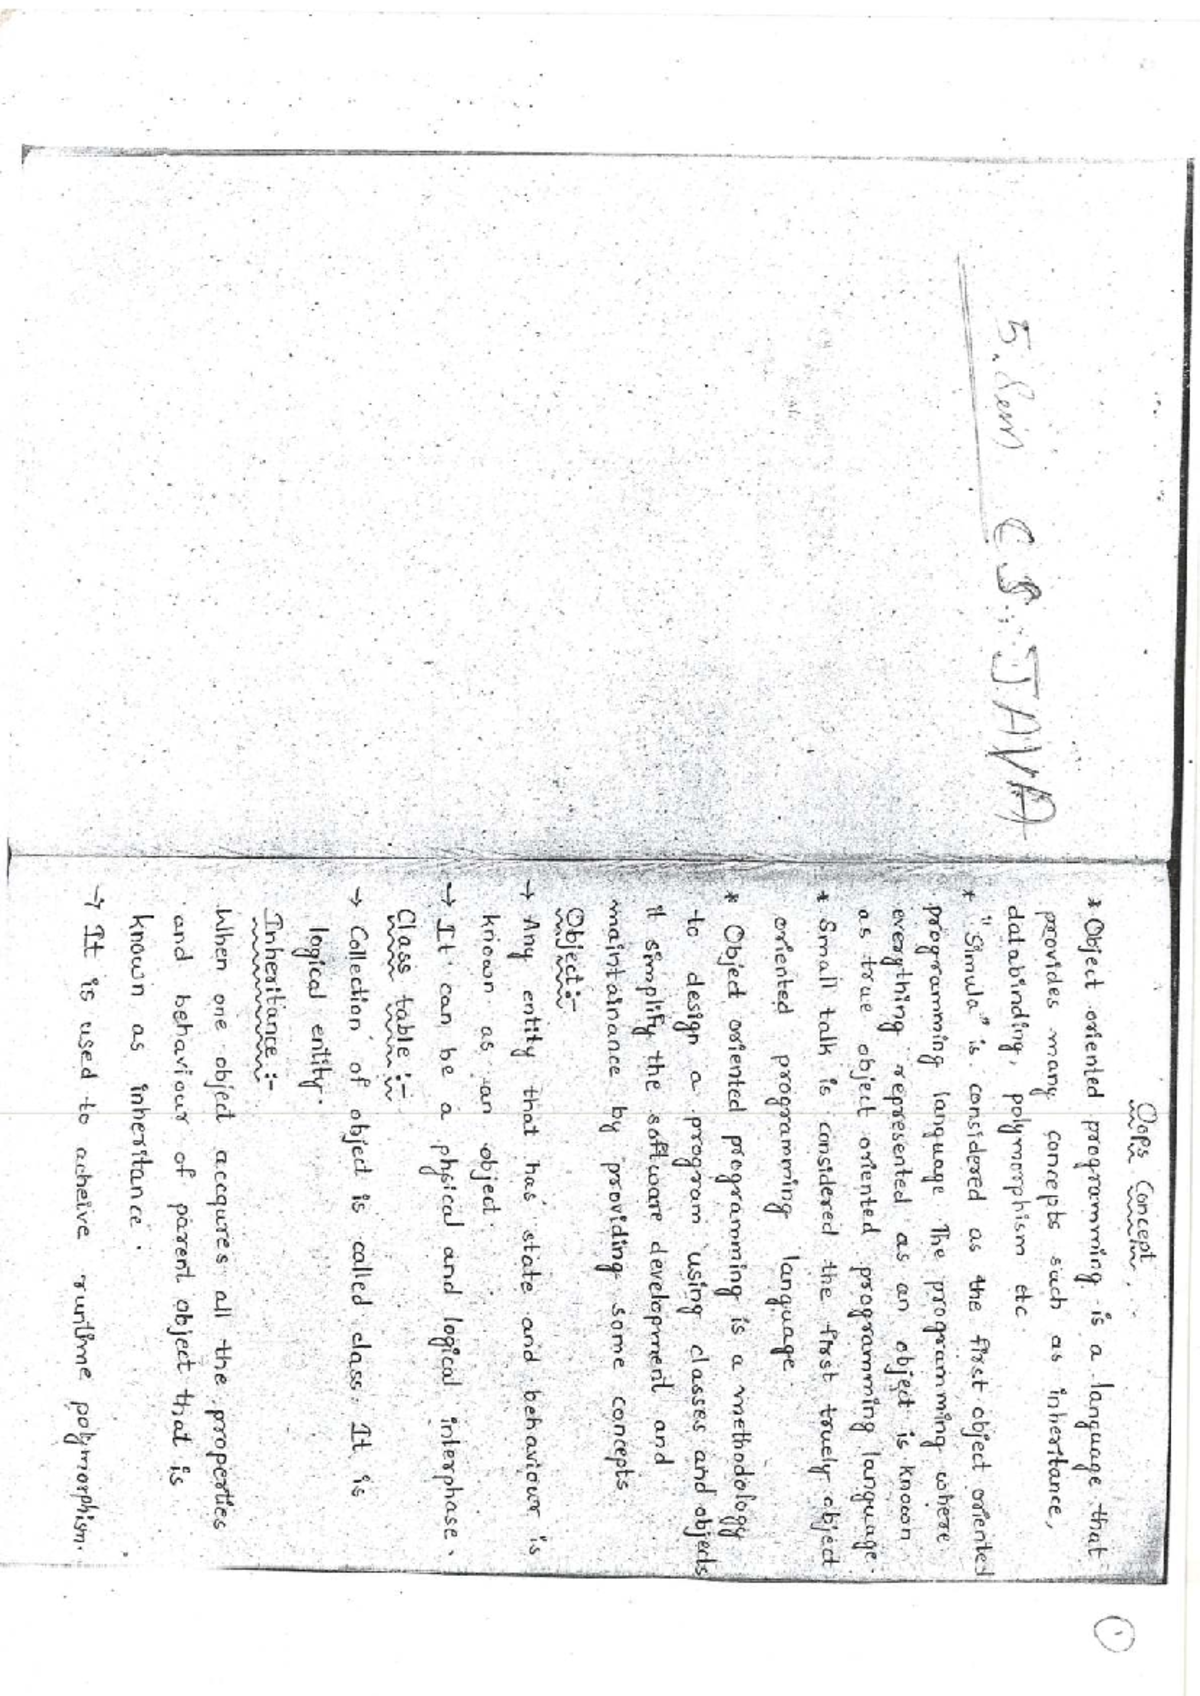 5. Sem CS. JAVA
Oops Concept
* Object oriented programming is a language that
provides many concepts such as inheritance,
databinding, polymorphism etc.
* "Simula" is considered as the first object oriented
programming language. The programming where
everything represented as an object is known
as true object oriented programming language.
* Small talk is considered the first truely object
oriented programming language
* Object oriented programming is a methodology
to design a program using classes and objects
it simplify the software development and
maintainance by providing some concepts.
Object:-
→ Any entity that has state and behaviour is
known as an object.
→ It can be a phsical and logical interphase.
Class table:-
→ Collection of object is called class. It is
logical entity.
Inheritance:-
When one object accqures all the properties
and behaviour of parent object that is
known as inheritance.
→ It is used to acheive runtime polymorphism.
1